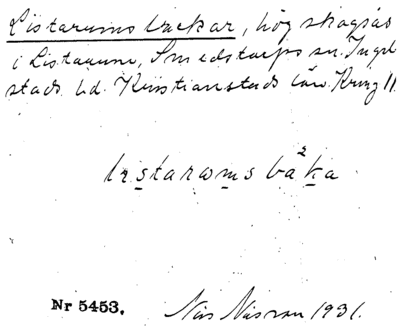 Listarums backar, hög skogsås
i Listarum, Smedstorps sn. Ingel-
stads hd. Kristianstads län. Kring 11
listarums baka
Nr 5453. Nils 1931.